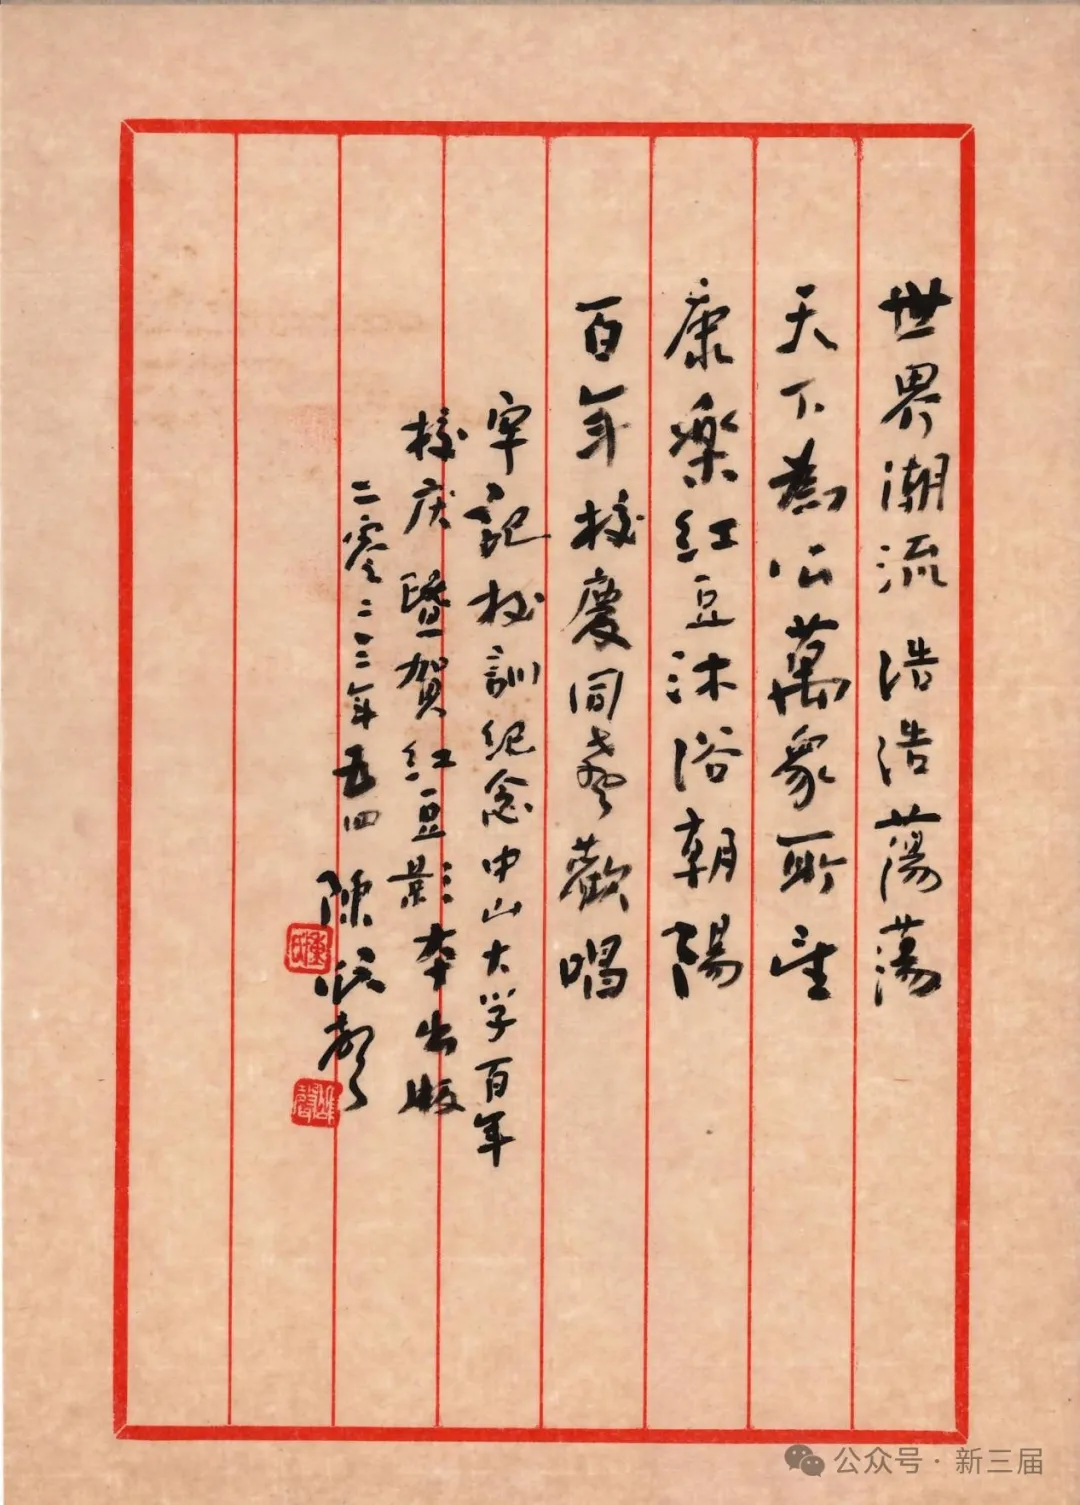 世界潮流浩浩蕩蕩
天下為公萬象所望
康樂紅豆沐浴朝陽
百年校慶同聲歡唱
牢記校訓紀念中山大学百年
校庆暨賀紅豆影存出版
二零二三年五四
陳
公众号·新三届